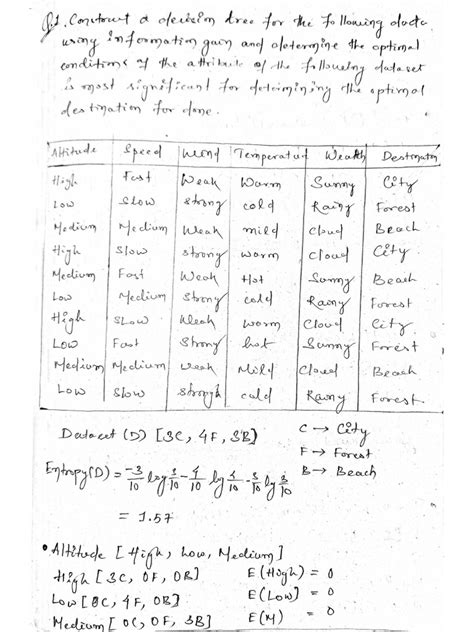 Q1. Construct a decision tree for the following data
using information gain and determine the optimal
conditions of the attribute of the following dataset
is most significant for determining the optimal
destination for done.
Altitude Speed Wind Temperatud Weath Destinaton
High Fast Weak Warm Sunny City
Low Slow strong cold Rainy Forest
Medium Medium Weak mild cloud Beach
High Slow strong warm Cloud City
Medium Fast Weak Hot Sunny Beach
Low Medium Strong cold Rainy Forest
High SLow Weak worm Cloud City
Low Fast Strong hot Sunny Forest
Medium Medium weak Mild Cloud Beach
Low Slow strongh cold Rainy Forest
Dataset (D) [3C, 4F, 3B] C → City
F → Forest
Entropy(D) = -3/10 log 3/10 - 4/10 log 4/10 - 3/10 log 3/10 B → Beach
= 1.57
• Altitude [High, Low, Medium]
High [3C, 0F, 0B] E(High) = 0
Low [0C, 4F, 0B] E(Low) = 0
Medium [0C, 0F, 3B] E(M) = 0